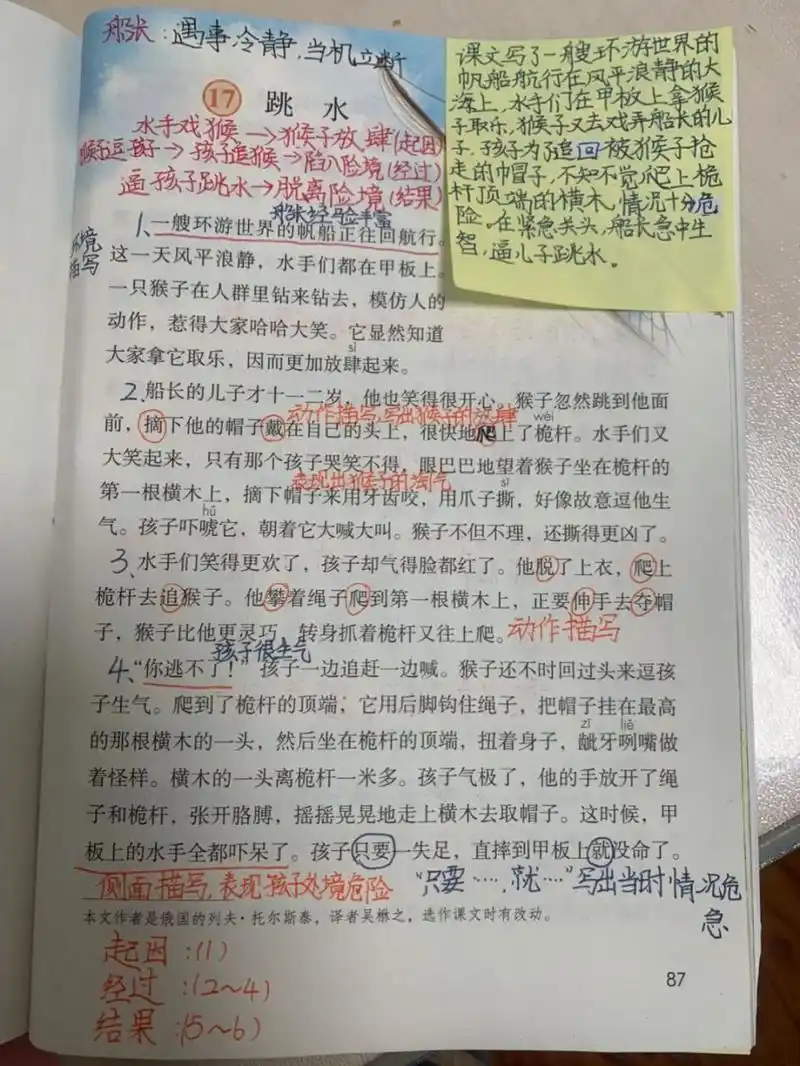 船长：遇事冷静，当机立断
课文写了一艘环游世界的
帆船航行在风平浪静的大
海上，水手们在甲板上拿猴
子取乐，猴子又去戏弄船长的儿
子，孩子为了追回被猴子抢
走的帽子，不知不觉爬上桅
杆顶端的横木，情况十分危
险。在紧急关头，船长急中生
智，逼儿子跳水。
17 跳水
水手戏猴→猴子放肆(起因)
猴子逗孩子→孩子追猴→陷入险境(经过)
逼孩子跳水→脱离险境(结果)
船长经验丰富
环境
描写
1、一艘环游世界的帆船正往回航行。
这一天风平浪静，水手们都在甲板上。
一只猴子在人群里钻来钻去，模仿人的
动作，惹得大家哈哈大笑。它显然知道
sì
大家拿它取乐，因而更加放肆起来。
2、船长的儿子才十一二岁，他也笑得很开心。猴子忽然跳到他面
动作描写,写出猴子的放肆
wéi
前，摘下他的帽子戴在自己的头上，很快地爬上了桅杆。水手们又
大笑起来，只有那个孩子哭笑不得，眼巴巴地望着猴子坐在桅杆的
表现出猴子的淘气
sī
第一根横木上，摘下帽子来用牙齿咬，用爪子撕，好像故意逗他生
hǔ
气。孩子吓唬它，朝着它大喊大叫。猴子不但不理，还撕得更凶了。
3、水手们笑得更欢了，孩子却气得脸都红了。他脱了上衣，爬上
桅杆去追猴子。他攀着绳子爬到第一根横木上，正要伸手去夺帽
子，猴子比他更灵巧，转身抓着桅杆又往上爬。
动作描写
孩子很生气
4、“你逃不了！”孩子一边追赶一边喊。猴子还不时回过头来逗孩
子生气。爬到了桅杆的顶端，它用后脚钩住绳子，把帽子挂在最高
zī liě
的那根横木的一头，然后坐在桅杆的顶端，扭着身子，龇牙咧嘴做
着怪样。横木的一头离桅杆一米多。孩子气极了，他的手放开了绳
子和桅杆，张开胳膊，摇摇晃晃地走上横木去取帽子。这时候，甲
板上的水手全都吓呆了。孩子只要一失足，直摔到甲板上就没命了。
侧面描写,表现孩子处境危险
“只要……，就……”写出当时情况危
急
本文作者是俄国的列夫·托尔斯泰，译者吴墩之，选作课文时有改动。
起因：(1)
经过：(2～4)
结果：(5～6)
87